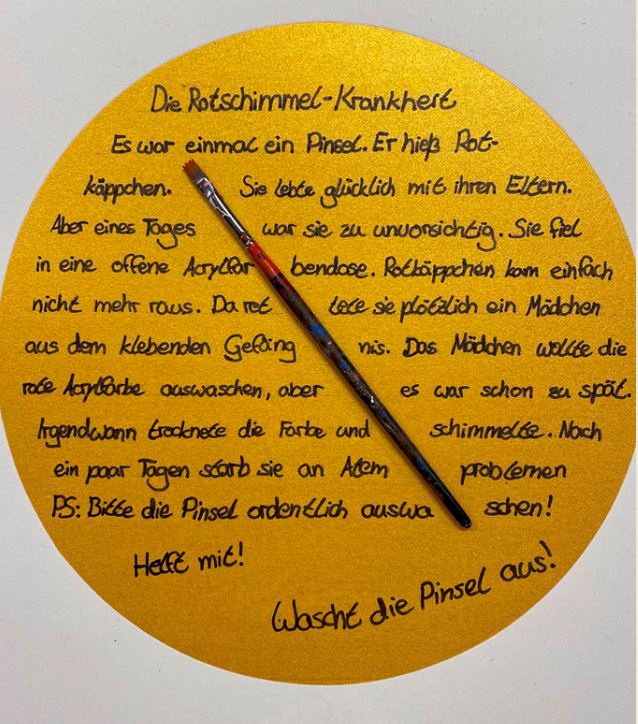 Die Rotschimmel-Krankheit
Es war einmal ein Pinsel. Er hieß Rot-
käppchen. Sie lebte glücklich mit ihren Eltern.
Aber eines Tages war sie zu unvorsichtig. Sie fiel
in eine offene Acrylfar bendose. Rotkäppchen kam einfach
nicht mehr raus. Da ret tete sie plötzlich ein Mädchen
aus dem klebenden Gefäng nis. Das Mädchen wollte die
rote Acrylfarbe auswaschen, aber es war schon zu spät.
Irgendwann trocknete die Farbe und schimmelte. Nach
ein paar Tagen starb sie an Atem problemen
PS: Bitte die Pinsel ordentlich auswa schen!
Helft mit!
Wascht die Pinsel aus!